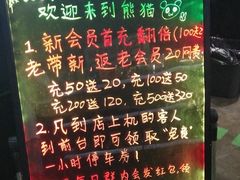 欢迎来到熊猫
1. 新会员首充翻倍(100起
老带新 返老会员20网费
充50送20, 充100送50
充200送120, 充500送320
2. 凡到店上机的客人
到前台即可领取“免费”
一小时停车券!
每日群内会发红包,领